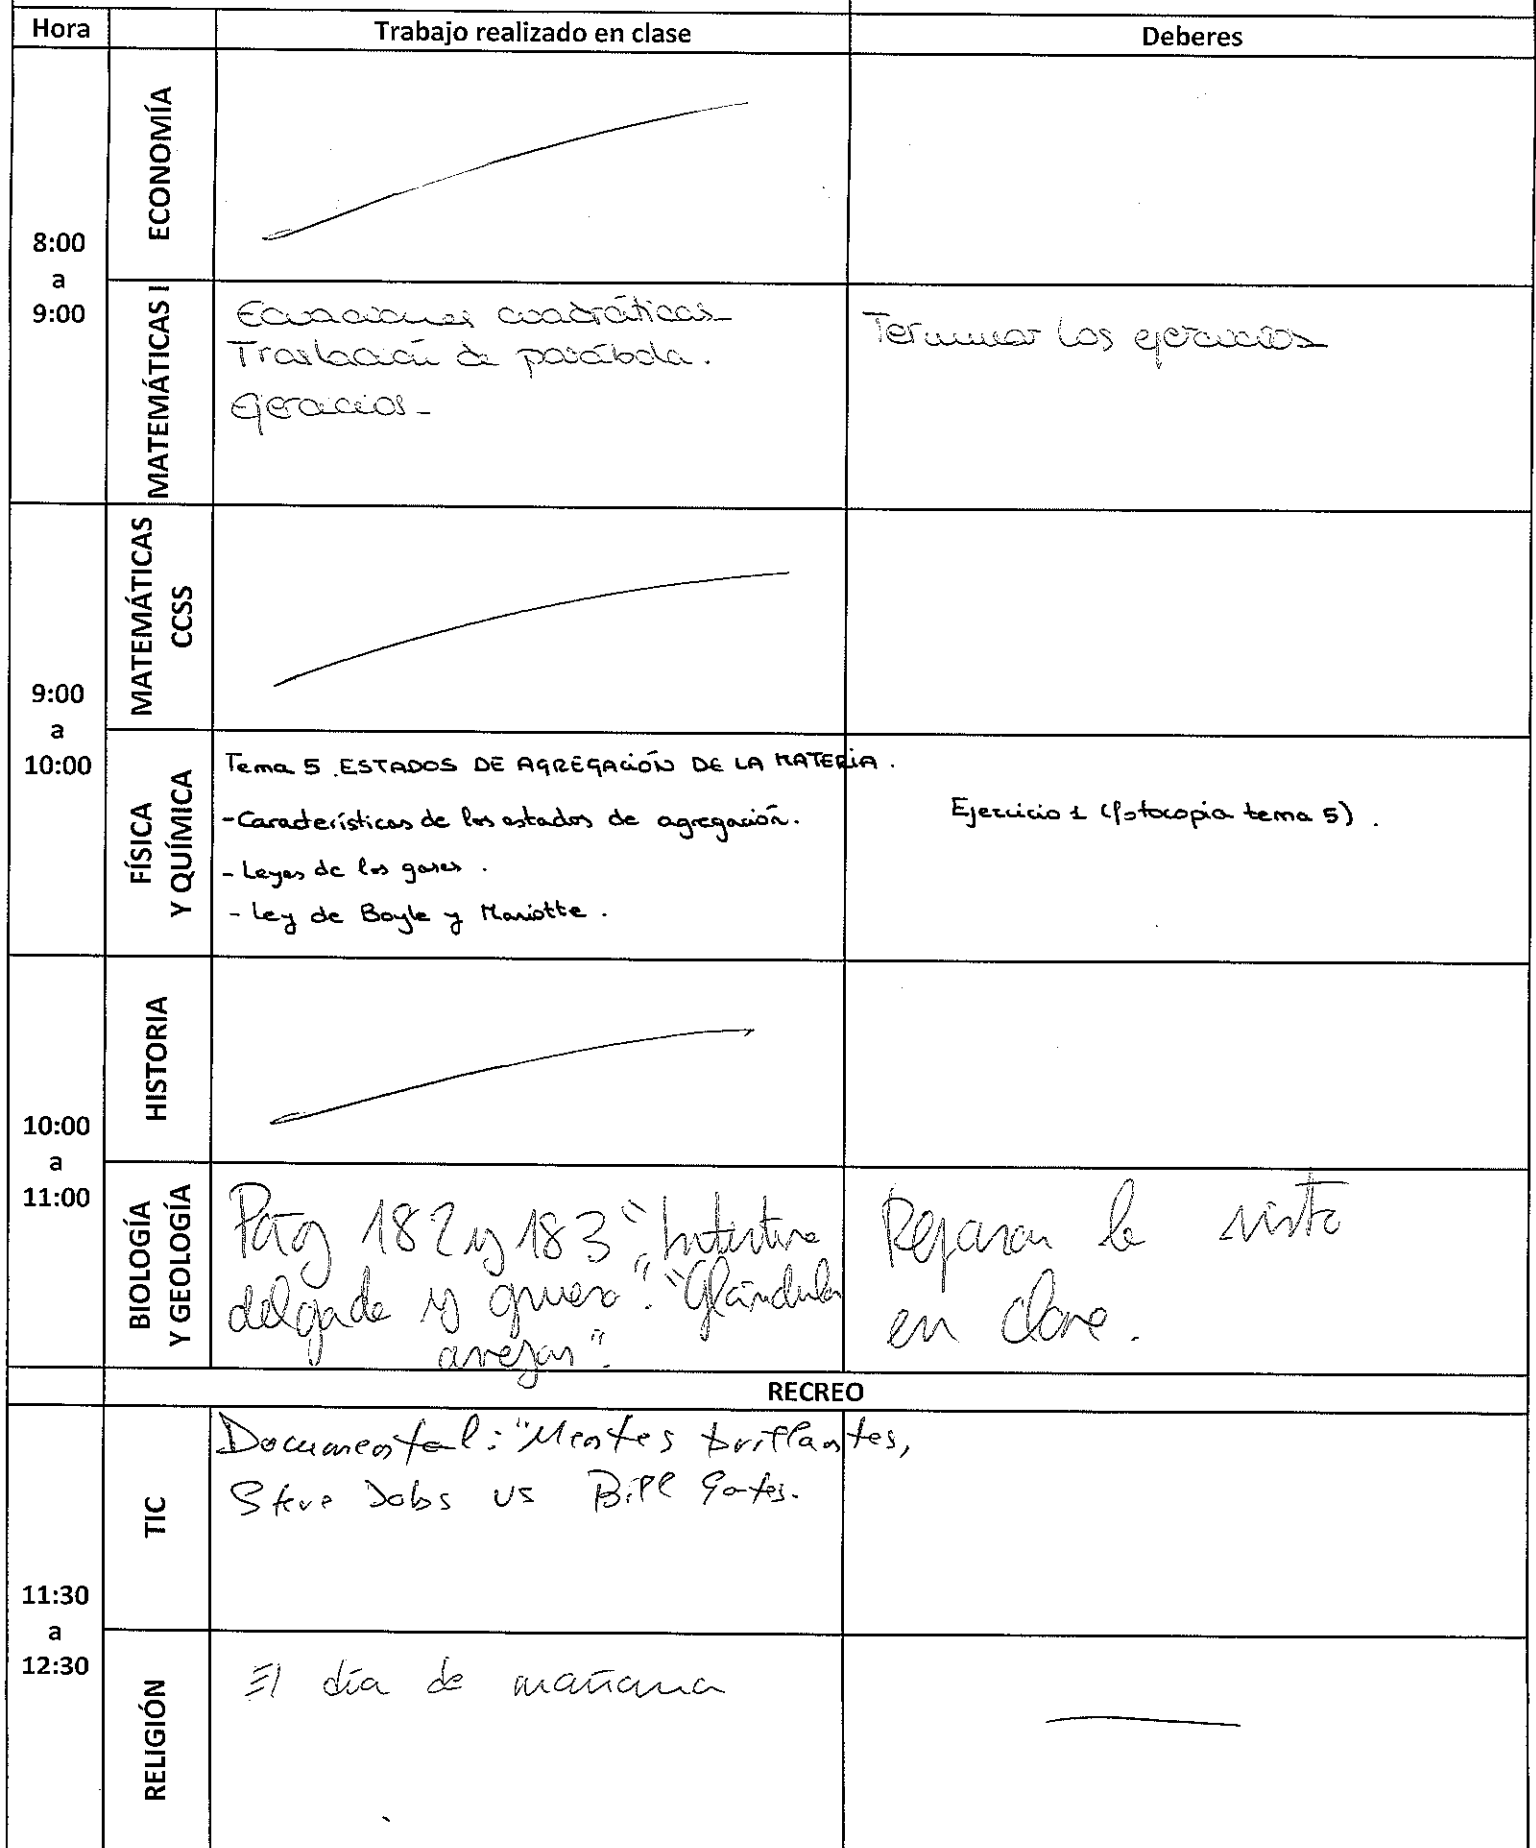 Hora Trabajo realizado en clase Deberes
8:00
a
9:00
ECONOMÍA
MATEMÁTICAS I
Ecuaciones cuadráticas
Traslación de parábola.
ejercicios
Terminar los ejercicios
9:00
a
10:00
MATEMÁTICAS
CCSS
FÍSICA
Y QUÍMICA
Tema 5. ESTADOS DE AGREGACIÓN DE LA MATERIA.
- Características de los estados de agregación.
- Leyes de los gases.
- Ley de Boyle y Mariotte.
Ejercicio 1 (fotocopia tema 5).
10:00
a
11:00
HISTORIA
BIOLOGÍA
Y GEOLOGÍA
Pág 182 y 183 "Intestino
delgado y grueso". "Glándulas
anejas".
Repasar lo visto
en clase.
RECREO
11:30
a
12:30
TIC
Documental: "Mentes brillantes,
Steve Jobs vs Bill Gates.
RELIGIÓN
El día de mañana